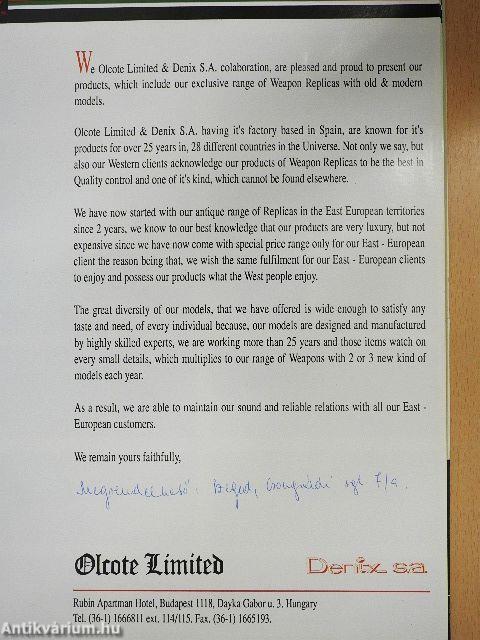 We Olcote Limited & Denix S.A. colaboration, are pleased and proud to present our
products, which include our exclusive range of Weapon Replicas with old & modern
models.
Olcote Limited & Denix S.A. having it's factory based in Spain, are known for it's
products for over 25 years in, 28 different countries in the Universe. Not only we say, but
also our Western clients acknowledge our products of Weapon Replicas to be the best in
Quality control and one of it's kind, which cannot be found elsewhere.
We have now started with our antique range of Replicas in the East European territories
since 2 years, we know to our best knowledge that our products are very luxury, but not
expensive since we have now come with special price range only for our East - European
client the reason being that, we wish the same fulfilment for our East - European clients
to enjoy and possess our products what the West people enjoy.
The great diversity of our models, that we have offered is wide enough to satisfy any
taste and need, of every individual because, our models are designed and manufactured
by highly skilled experts, we are working more than 25 years and those items watch on
every small details, which multiplies to our range of Weapons with 2 or 3 new kind of
models each year.
As a result, we are able to maintain our sound and reliable relations with all our East -
European customers.
We remain yours faithfully,
Megrendelhető: Szeged, Csongrádi sgt 7/a.
Olcote Limited
Denix s.a.
Rubin Apartman Hotel, Budapest 1118, Dayka Gabor u. 3. Hungary
Tel. (36-1) 1666811 ext. 114/115, Fax. (36-1) 1665193.
Antikvárium.hu